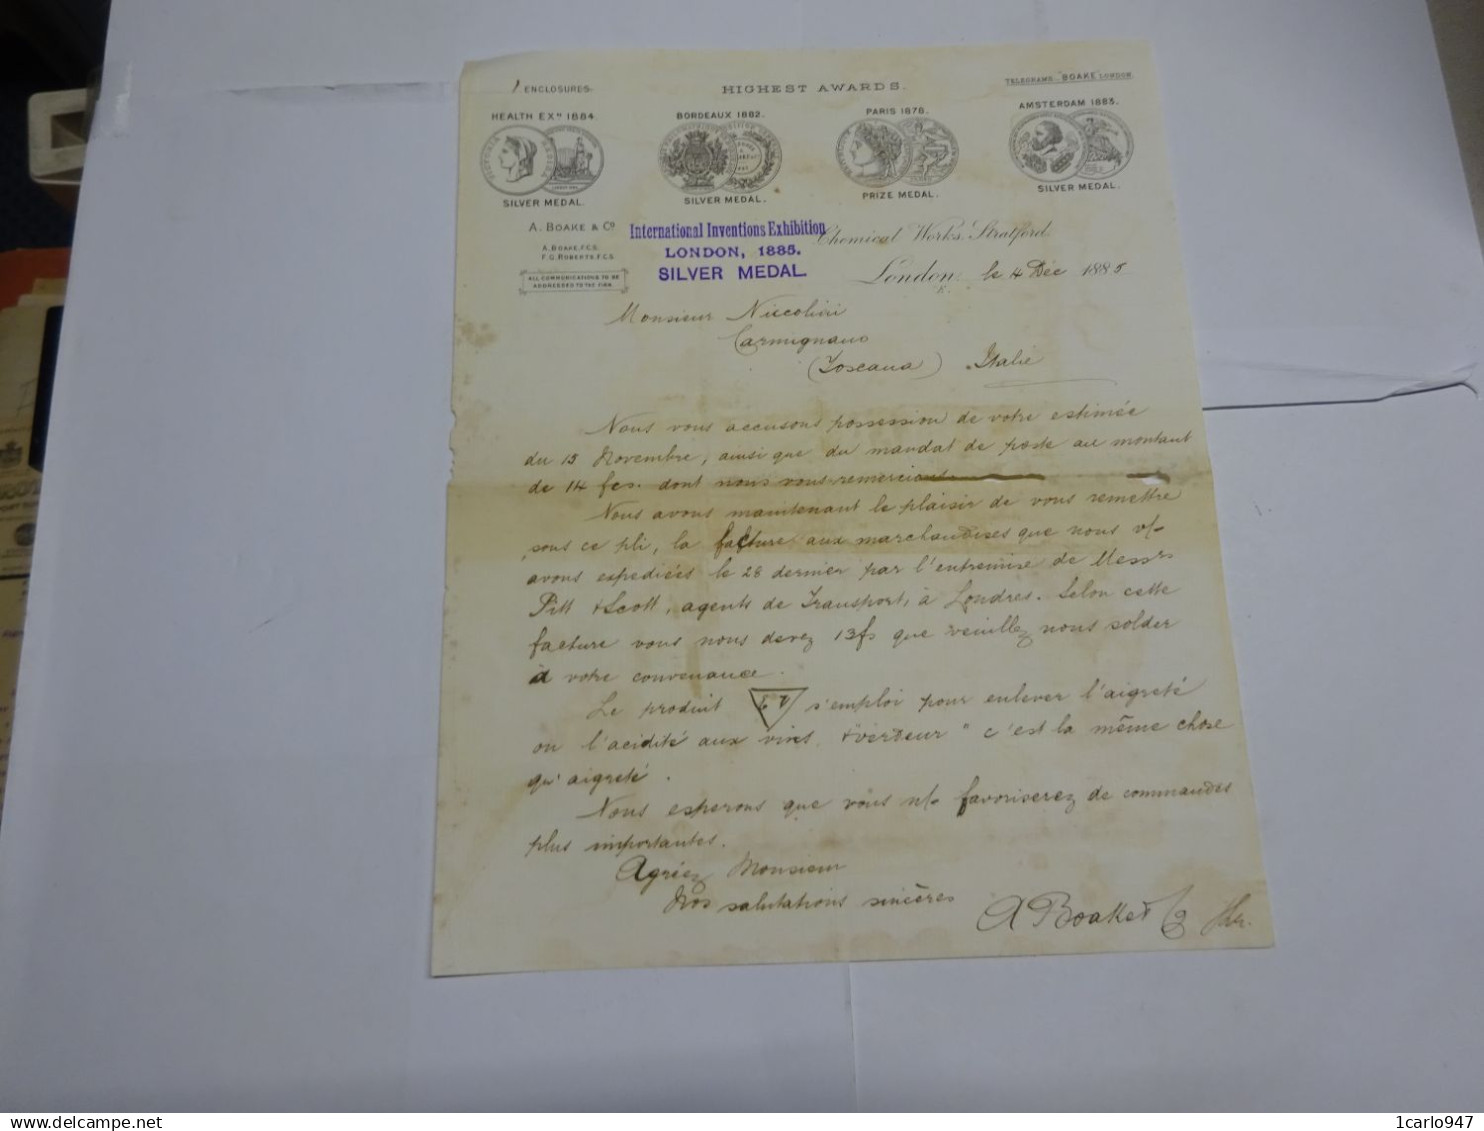 1 ENCLOSURES.
HIGHEST AWARDS.
TELEGRAMS. "BOAKE" LONDON.
HEALTH EXN 1884.
BORDEAUX 1882.
PARIS 1878.
AMSTERDAM 1883.
SILVER MEDAL.
SILVER MEDAL.
PRIZE MEDAL.
SILVER MEDAL.
A. BOAKE & Co
A. BOAKE, F.C.S.
F.G. ROBERTS, F.C.S.
ALL COMMUNICATIONS TO BE
ADDRESSED TO THE FIRM.
International Inventions Exhibition
LONDON, 1885.
SILVER MEDAL.
Chemical Works, Stratford.
London. le 4 Déc 1885
E.
Monsieur Niccolini
Carmignano
(Toscana) Italie
Nous vous accusons possession de votre estimée
du 15 Novembre, ainsi que du mandat de poste au montant
de 14 fcs. dont nous vous remercions
Nous avons maintenant le plaisir de vous remettre
sous ce pli, la facture aux marchandises que nous v/-
avons expediées le 28 dernier par l'entremise de Messrs
Pitt & Scott, agents de Transport, à Londres. Selon cette
facture vous nous devez 13fs que veuillez nous solder
à votre convenance.
Le produit s'emploi pour enlever l'aigreté
ou l'acidité aux vins. "verdeur" c'est la même chose
qu'aigreté.
Nous esperons que vous n/- favoriserez de commandes
plus importantes.
Agréez Monsieur
Nos salutations sincères
A Boake & Co
1carlo947